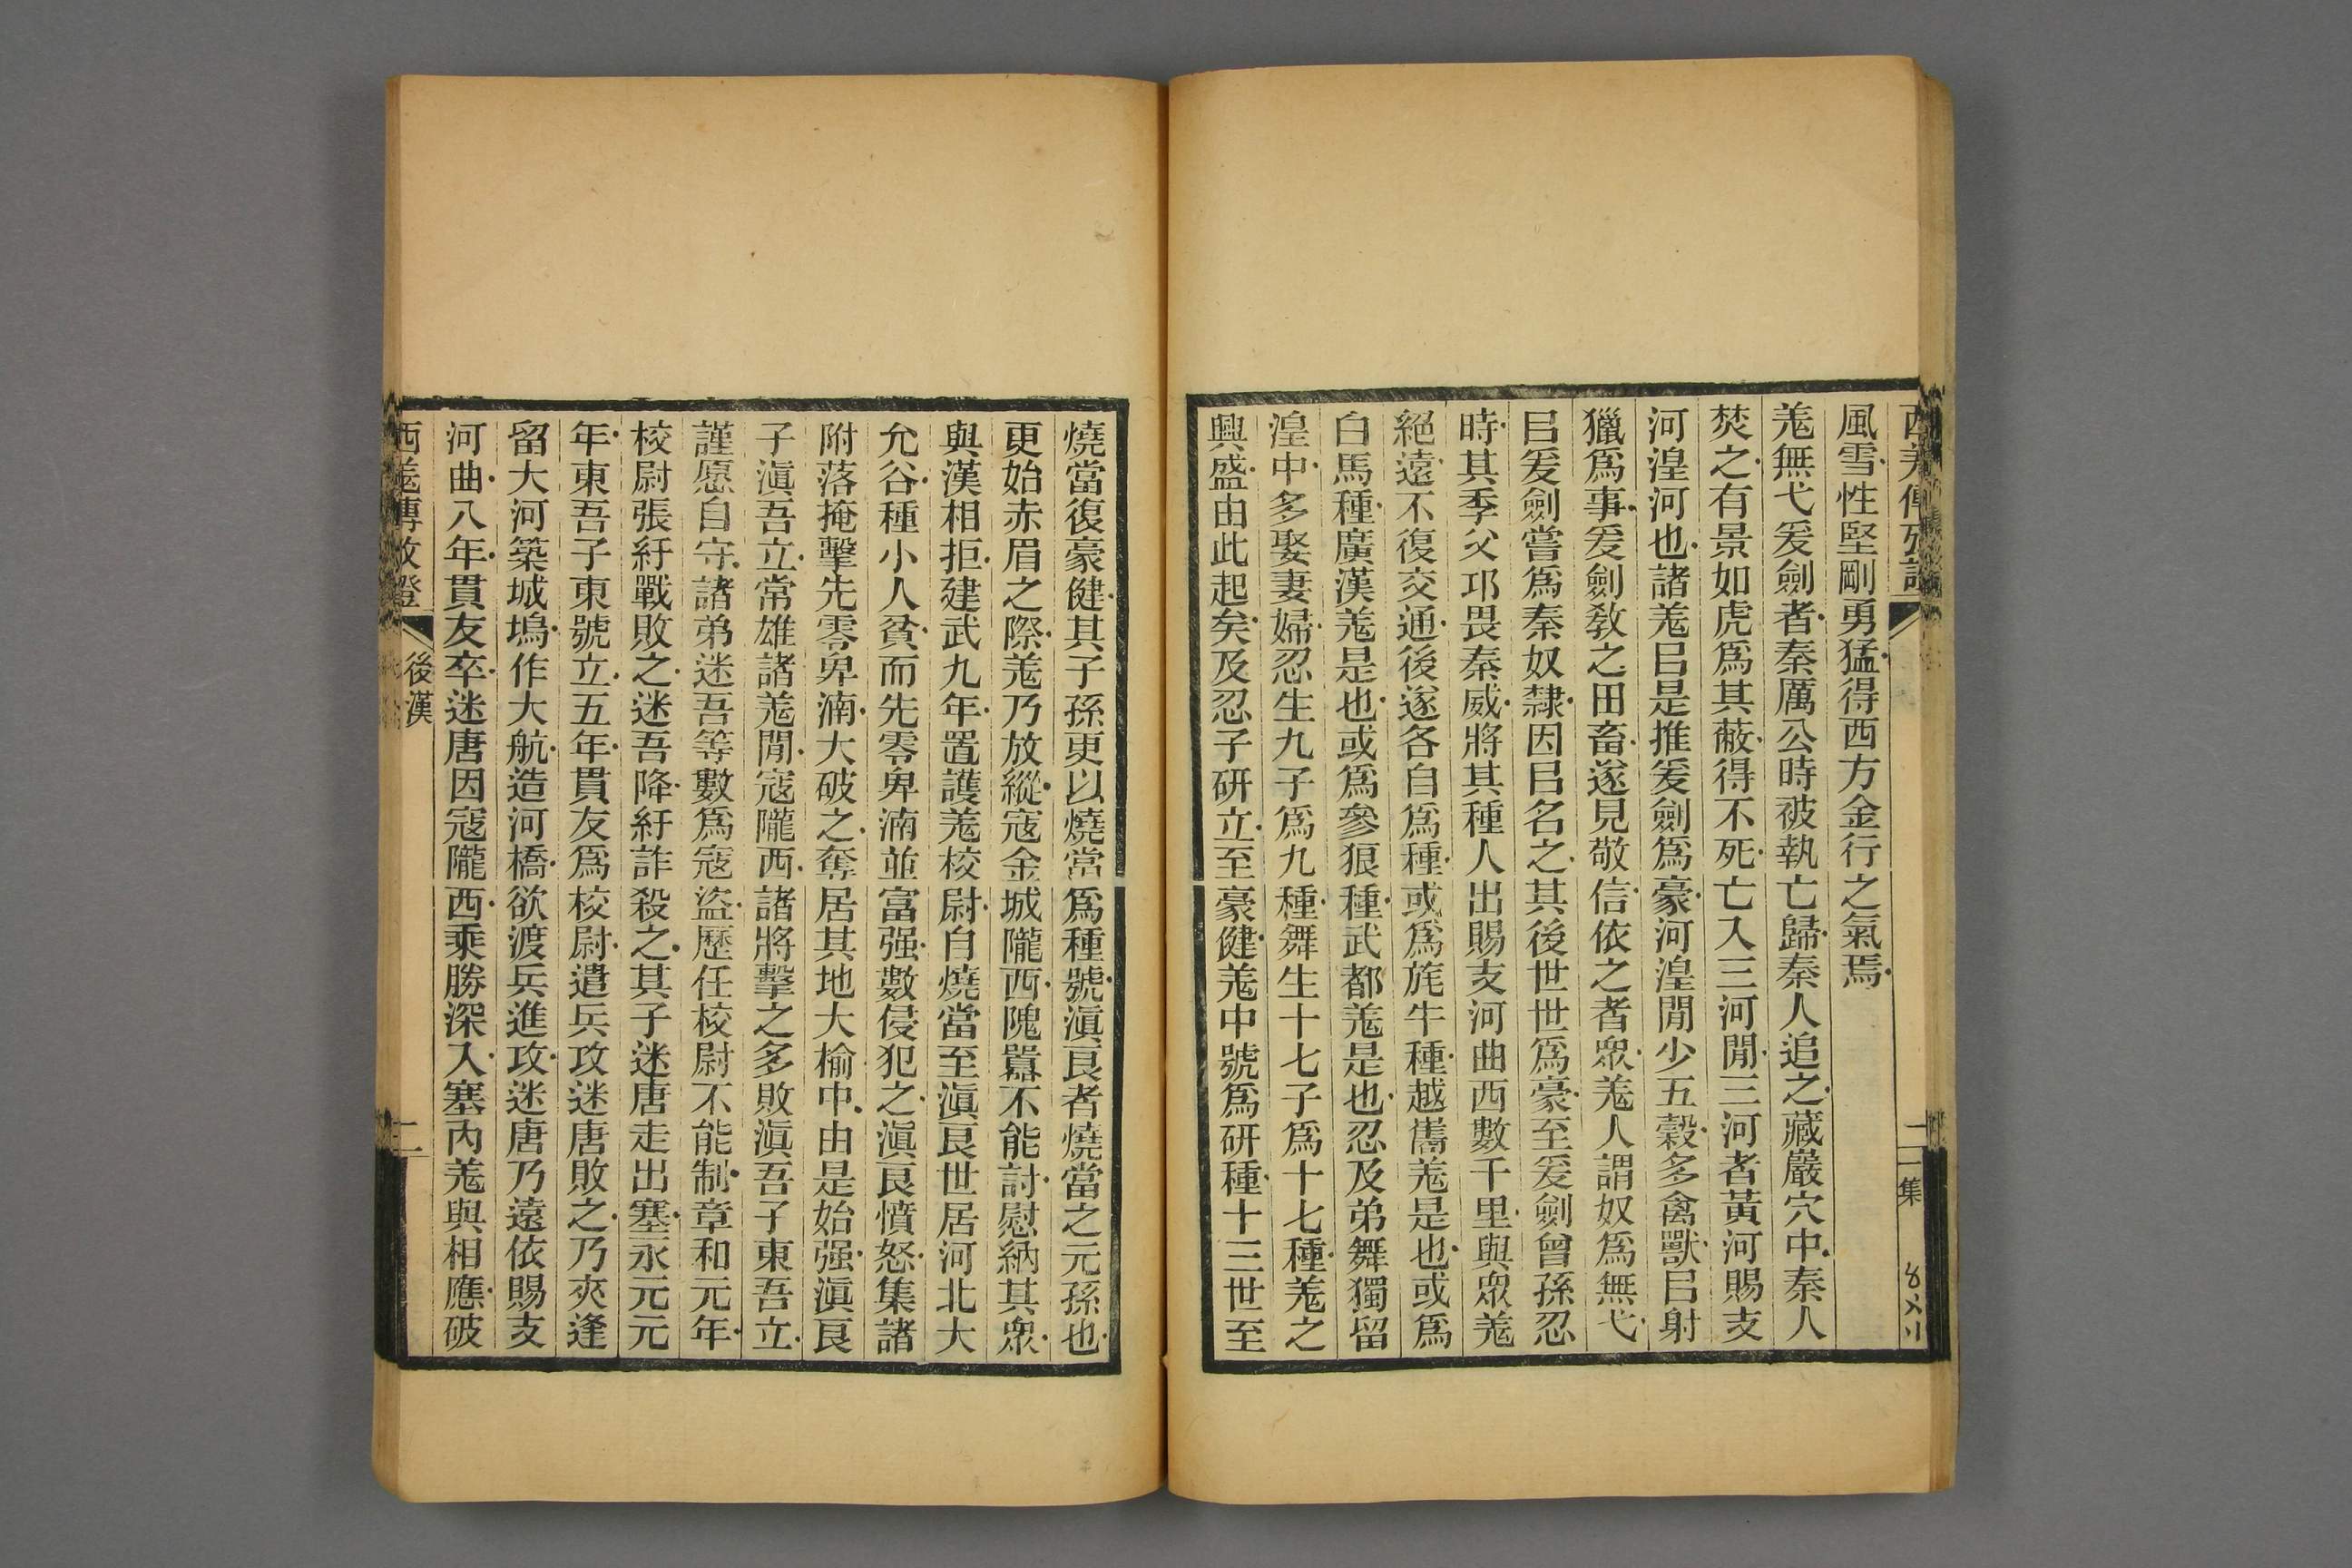 風雪性堅剛勇猛得西方金行之氣焉
羗無弋爰劍者秦厲公時被執亡歸秦人追之藏巖穴中秦人
焚之有景如虎爲其蔽得不死亡入三河閒三河者黃河賜支
河湟河也諸羗㠯是推爰劍爲豪河湟閒少五穀多禽獸㠯射
獵爲事爰劍敎之田畜遂見敬信依之者眾羗人謂奴爲無弋
㠯爰劍嘗爲秦奴隸因㠯名之其後世世爲豪至爰劍曾孫忍
時其季父卭畏秦威將其種人出賜支河曲西數千里與眾羗
絕遠不復交通後遂各自爲種或爲旄牛種越嶲羗是也或爲
白馬種廣漢羗是也或爲參狼種武都羗是也忍及弟舞獨留
湟中多娶妻婦忍生九子爲九種舞生十七子爲十七種羗之
興盛由此起矣及忍子研立至豪健羗中號爲研種十三世至
二集
燒當復豪健其子孫更以燒當爲種號滇良者燒當之元孫也
更始赤眉之際羗乃放縱寇金城隴西隗囂不能討慰納其眾
與漢相拒建武九年置護羗校尉自燒當至滇良世居河北大
允谷種小人貧而先零卑湳並富强數侵犯之滇良憤怒集諸
附落掩擊先零卑湳大破之奪居其地大榆中由是始强滇良
子滇吾立常雄諸羗閒寇隴西諸將擊之多敗滇吾子東吾立
謹愿自守諸弟迷吾等數爲寇盜歷任校尉不能制章和元年
校尉張紆戰敗之迷吾降紆詐殺之其子迷唐走出塞永元元
年東吾子東號立五年貫友爲校尉遣兵攻迷唐敗之乃夾逢
留大河築城塢作大航造河橋欲渡兵進攻迷唐乃遠依賜支
河曲八年貫友卒迷唐因寇隴西乘勝深入塞內羗與相應破
西羗傳攷證 後漢 二